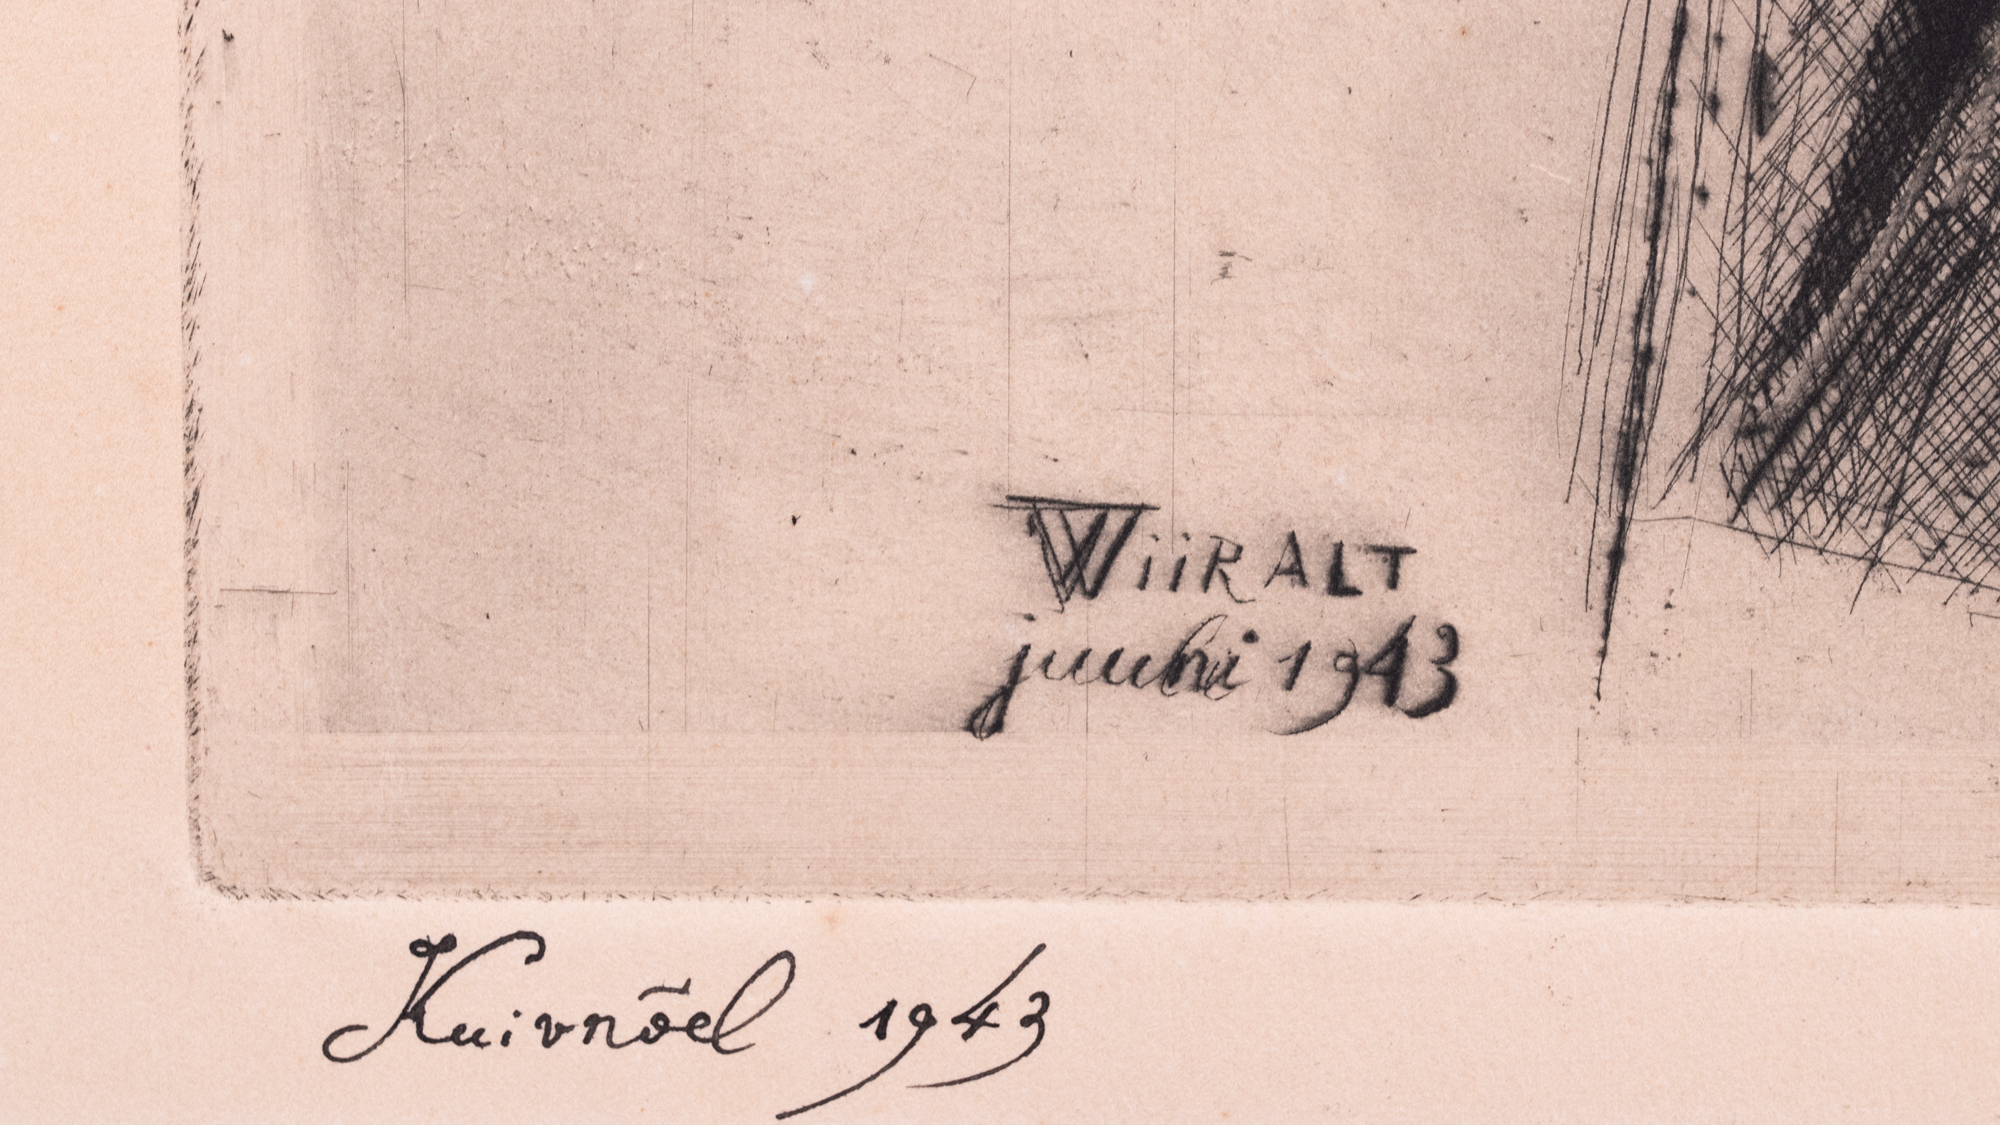 WiiRALT
juuni 1943
Kuivnõel 1943